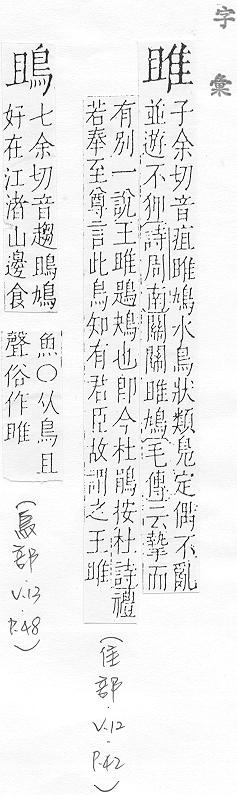 字彙
雎
子余切音疽雎鳩水鳥狀類鳧定偶不亂
並遊不狎詩周南關關雎鳩毛傳云摯而
有別一說王雎鶗鴂也卽今杜鵑按杜詩禮
若奉至尊言此鳥知有君臣故謂之王雎
(隹部 V.12 P.42)
鴡
七余切音趨鴡鳩
好在江渚山邊食
魚○从鳥且
聲俗作雎
(鳥部 V.13 P.48)